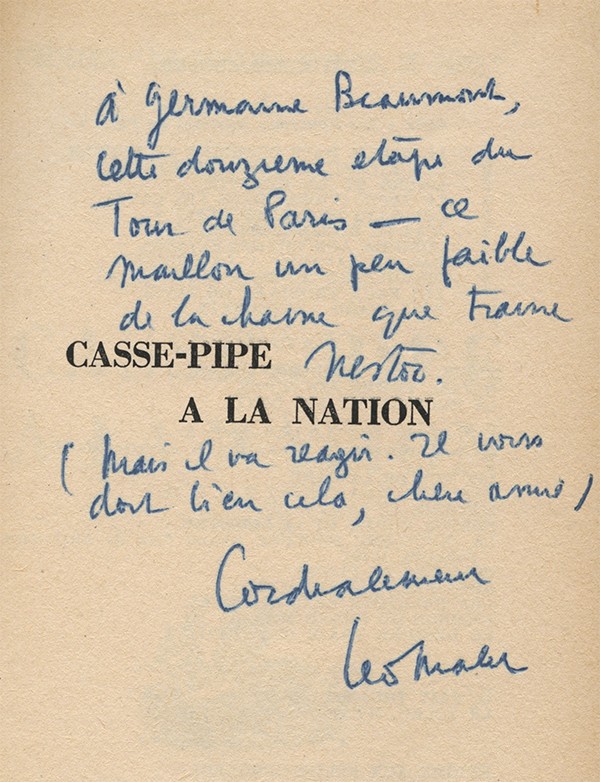 à Germaine Beaumont,
cette douzième étape du
Tour de Paris — ce
maillon un peu faible
de la chaîne que traîne
CASSE-PIPE Nestor.
A LA NATION
(Mais il va réagir. Il vous
doit bien cela, chère amie)
Cordialement
Léo Malet